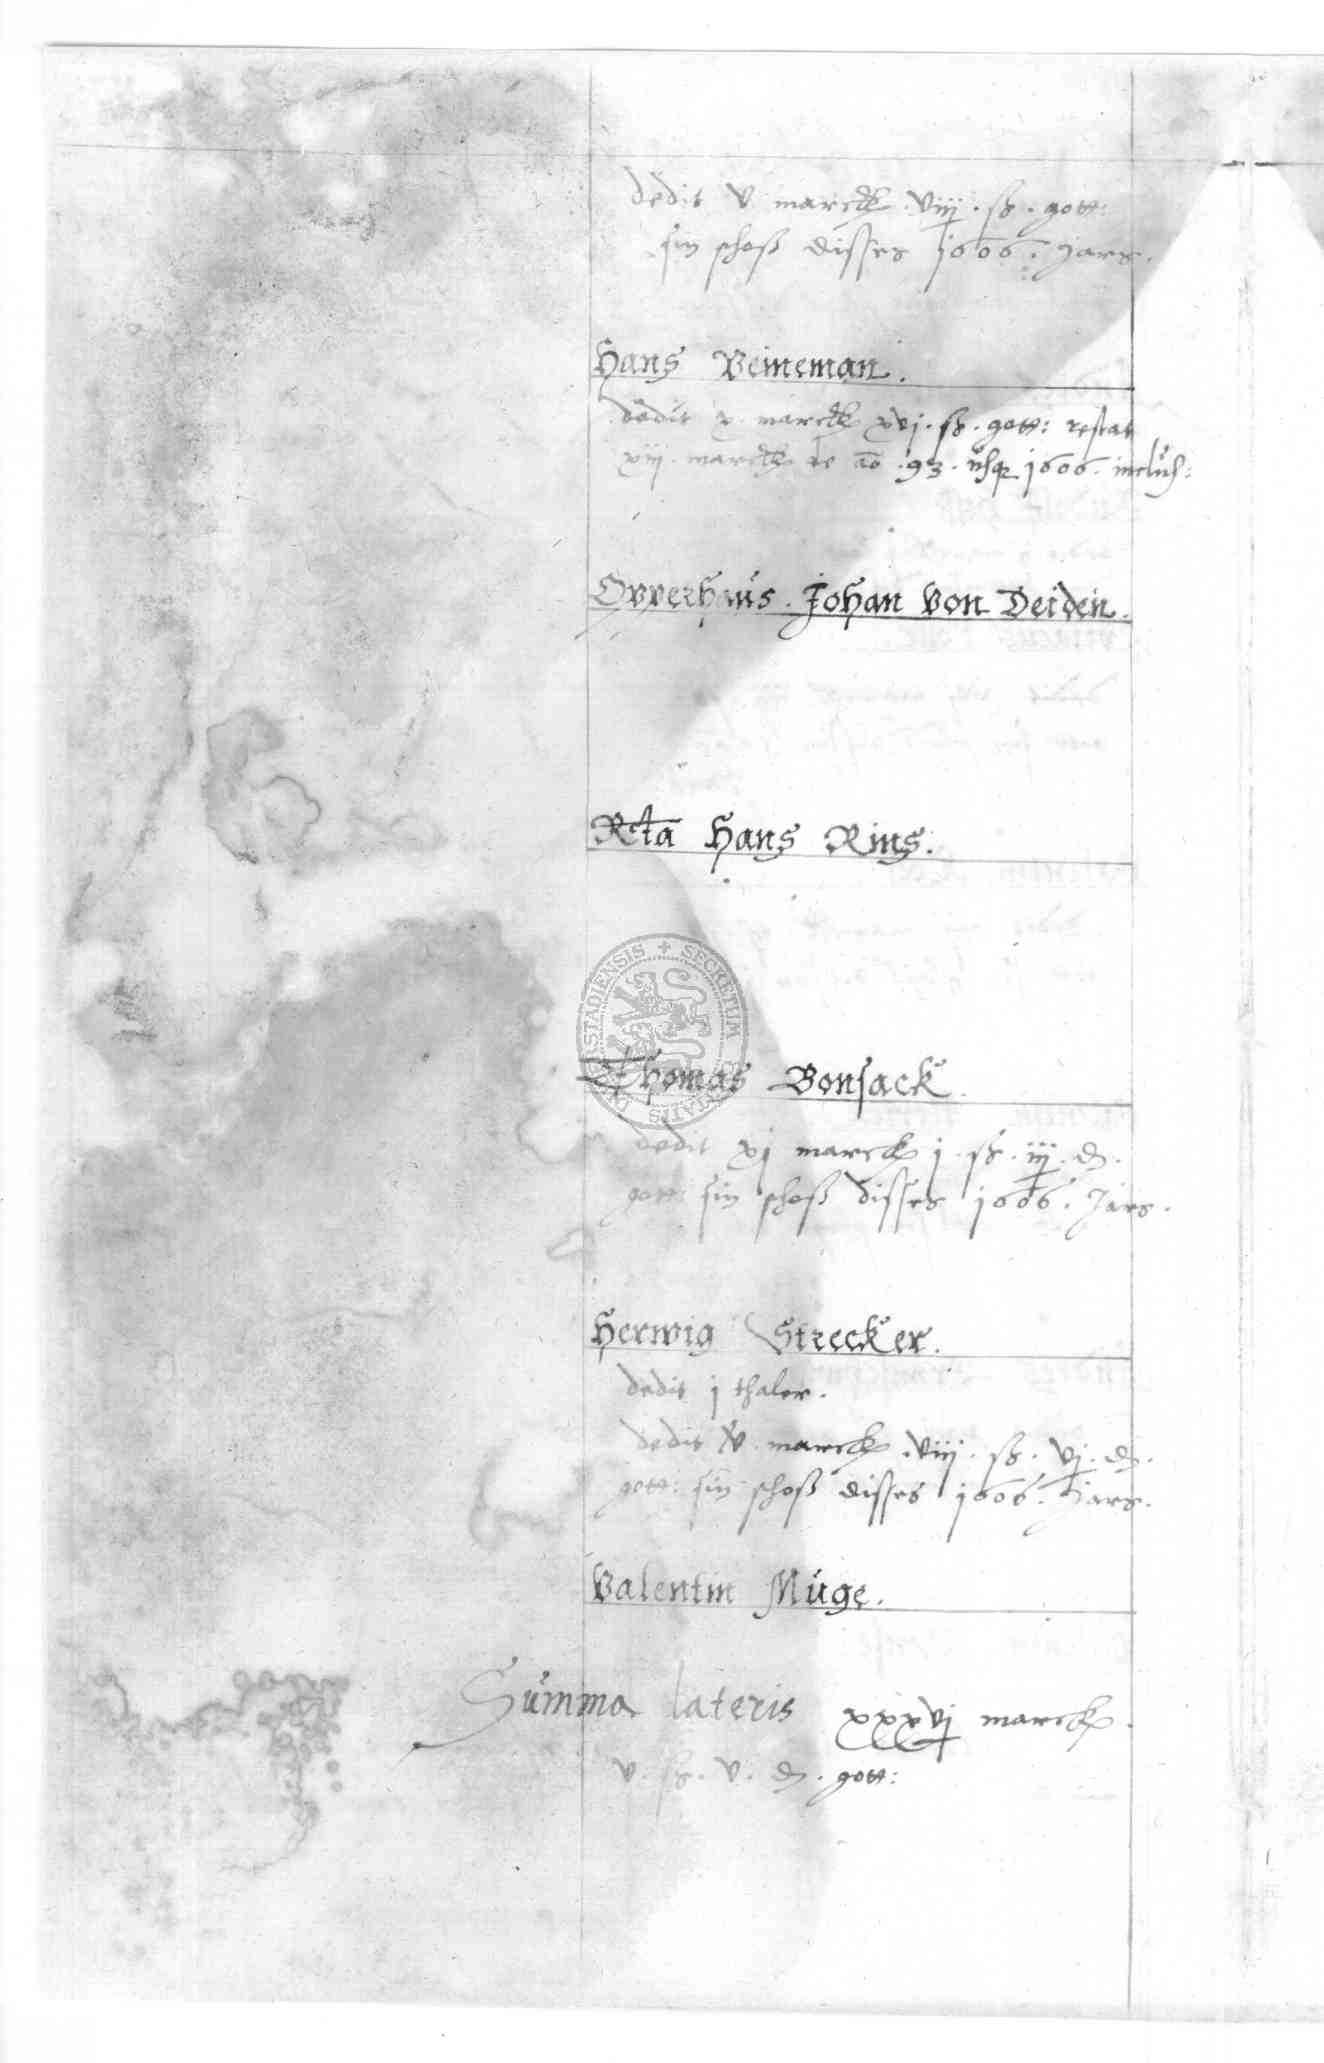 dedit v marck . viij . ß . gott:
sin schoß disses 1606 . Jars .
Hans Beineman .
dedit x marck xvj . ß . gott: restat
xiij . marck de ao . 93 . usque 1606 . inclus:
Opperhaus . Johan Von Deiden .
Rcta Hans Rins .
SECRETUM
Thomas Bonsack .
dedit xj marck j . ß . iij . d .
gott: sin schoß disses 1606 . Jars .
Herwig Strecker .
dedit j thaler .
dedit v . marck . viij . ß . vj . d .
gott: sin schoß disses 1606 . Jars .
Valentin Müge .
Summa lateris xxxvj marck .
v . ß . v . d . gott: